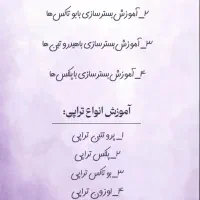 ۲_آموزش بسترسازی با بوتاکس‌ها
۳_آموزش بسترسازی با هیدروتین‌ها
۴_آموزش بسترسازی با پلکس‌ها
آموزش انواع تراپی:
۱_پروتئین تراپی
۲_پلکس تراپی
۳_بوتاکس تراپی
۴_اوزون تراپی